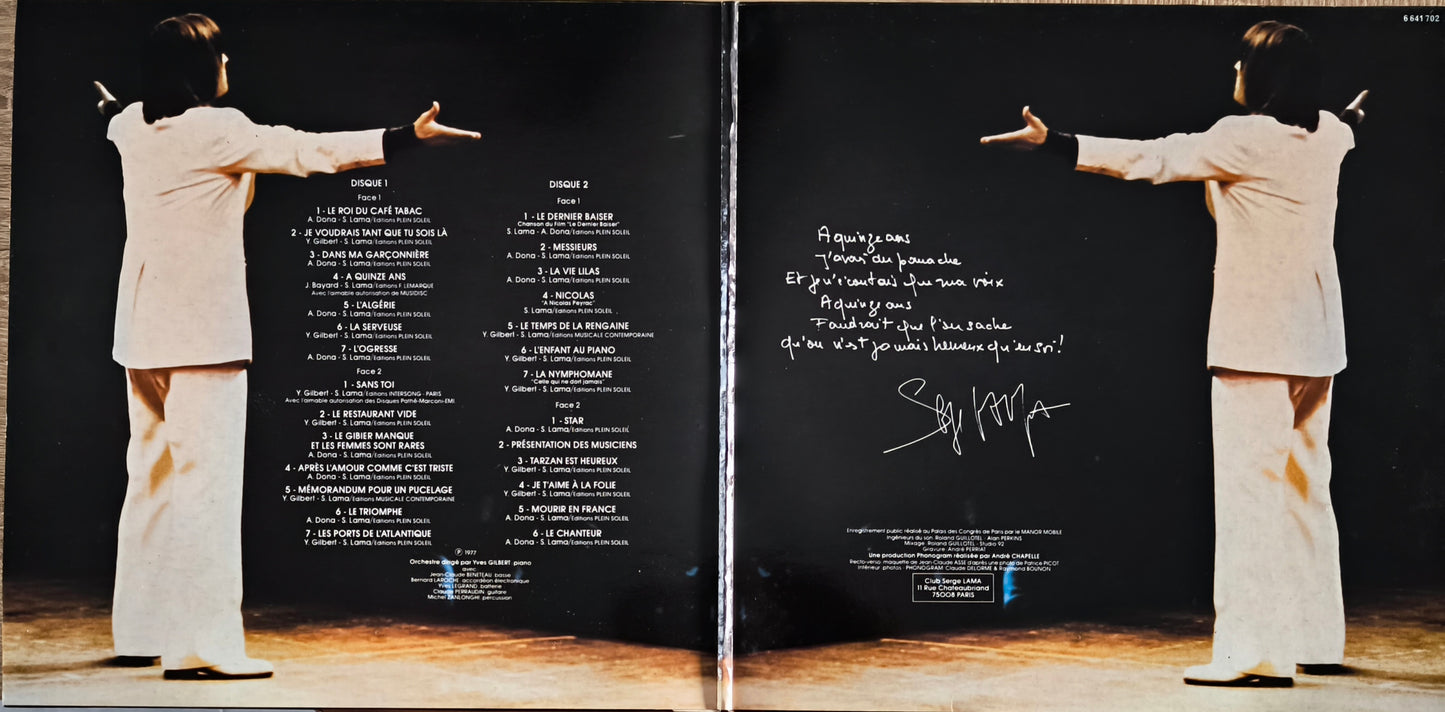 DISQUE 1
Face 1
1 - LE ROI DU CAFÉ TABAC
A. Dona - S. Lama/Editions PLEIN SOLEIL
2 - JE VOUDRAIS TANT QUE TU SOIS LÀ
Y. Gilbert - S. Lama/Editions PLEIN SOLEIL
3 - DANS MA GARÇONNIÈRE
A. Dona - S. Lama/Editions PLEIN SOLEIL
4 - A QUINZE ANS
J. Bayard - S. Lama/Editions F. LEMARQUE
Avec l'aimable autorisation de MUSIDISC
5 - L'ALGÉRIE
A. Dona - S. Lama/Editions PLEIN SOLEIL
6 - LA SERVEUSE
Y. Gilbert - S. Lama/Editions PLEIN SOLEIL
7 - L'OGRESSE
A. Dona - S. Lama/Editions PLEIN SOLEIL
Face 2
1 - SANS TOI
Y. Gilbert - S. Lama/Editions INTERSONG - PARIS
Avec l'aimable autorisation des Disques Pathé-Marconi-EMI
2 - LE RESTAURANT VIDE
Y. Gilbert - S. Lama/Editions PLEIN SOLEIL
3 - LE GIBIER MANQUE
ET LES FEMMES SONT RARES
A. Dona - S. Lama/Editions PLEIN SOLEIL
4 - APRÈS L'AMOUR COMME C'EST TRISTE
A. Dona - S. Lama/Editions PLEIN SOLEIL
5 - MÉMORANDUM POUR UN PUCELAGE
Y. Gilbert - S. Lama/Editions MUSICALE CONTEMPORAINE
6 - LE TRIOMPHE
A. Dona - S. Lama/Editions PLEIN SOLEIL
7 - LES PORTS DE L'ATLANTIQUE
Y. Gilbert - S. Lama/Editions PLEIN SOLEIL
DISQUE 2
Face 1
1 - LE DERNIER BAISER
Chanson du Film "Le Dernier Baiser"
S. Lama - A. Dona/Editions PLEIN SOLEIL
2 - MESSIEURS
A. Dona - S. Lama/Editions PLEIN SOLEIL
3 - LA VIE LILAS
A. Dona - S. Lama/Editions PLEIN SOLEIL
4 - NICOLAS
"A Nicolas Peyrac"
S. Lama/Editions PLEIN SOLEIL
5 - LE TEMPS DE LA RENGAINE
Y. Gilbert - S. Lama/Editions MUSICALE CONTEMPORAINE
6 - L'ENFANT AU PIANO
Y. Gilbert - S. Lama/Editions PLEIN SOLEIL
7 - LA NYMPHOMANE
"Celle qui ne dort jamais"
Y. Gilbert - S. Lama/Editions PLEIN SOLEIL
Face 2
1 - STAR
A. Dona - S. Lama/Editions PLEIN SOLEIL
2 - PRÉSENTATION DES MUSICIENS
3 - TARZAN EST HEUREUX
Y. Gilbert - S. Lama/Editions PLEIN SOLEIL
4 - JE T'AIME À LA FOLIE
Y. Gilbert - S. Lama/Editions PLEIN SOLEIL
5 - MOURIR EN FRANCE
A. Dona - S. Lama/Editions PLEIN SOLEIL
6 - LE CHANTEUR
A. Dona - S. Lama/Editions PLEIN SOLEIL
℗ 1977
Orchestre dirigé par Yves GILBERT piano
avec
Jean-Claude BENETEAU basse
Bernard LAROCHE accordéon électronique
Yves LEGRAND batterie
Claude PERRAUDIN guitare
Michel ZANLONGHI percussion
6 641 702
A quinze ans
J'avais du panache
Et je n'écoutais que ma voix
A quinze ans
Faudrait que l'on sache
qu'on n'est jamais heureux qu'en soi!
Serge Lama
Enregistrement public réalisé au Palais des Congrès de Paris par le MANOR MOBILE
Ingénieurs du son: Roland GUILLOTEL - Alan PERKINS
Mixage: Roland GUILLOTEL - Studio 92
Gravure: André PERRIAT
Une production Phonogram réalisée par André CHAPELLE
Recto-verso: maquette de Jean-Claude ASSE d'après une photo de Patrice PICOT
Intérieur: photos: PHONOGRAM Claude DELORME & Raymond BOUNON
Club Serge LAMA
11 Rue Chateaubriand
75008 PARIS